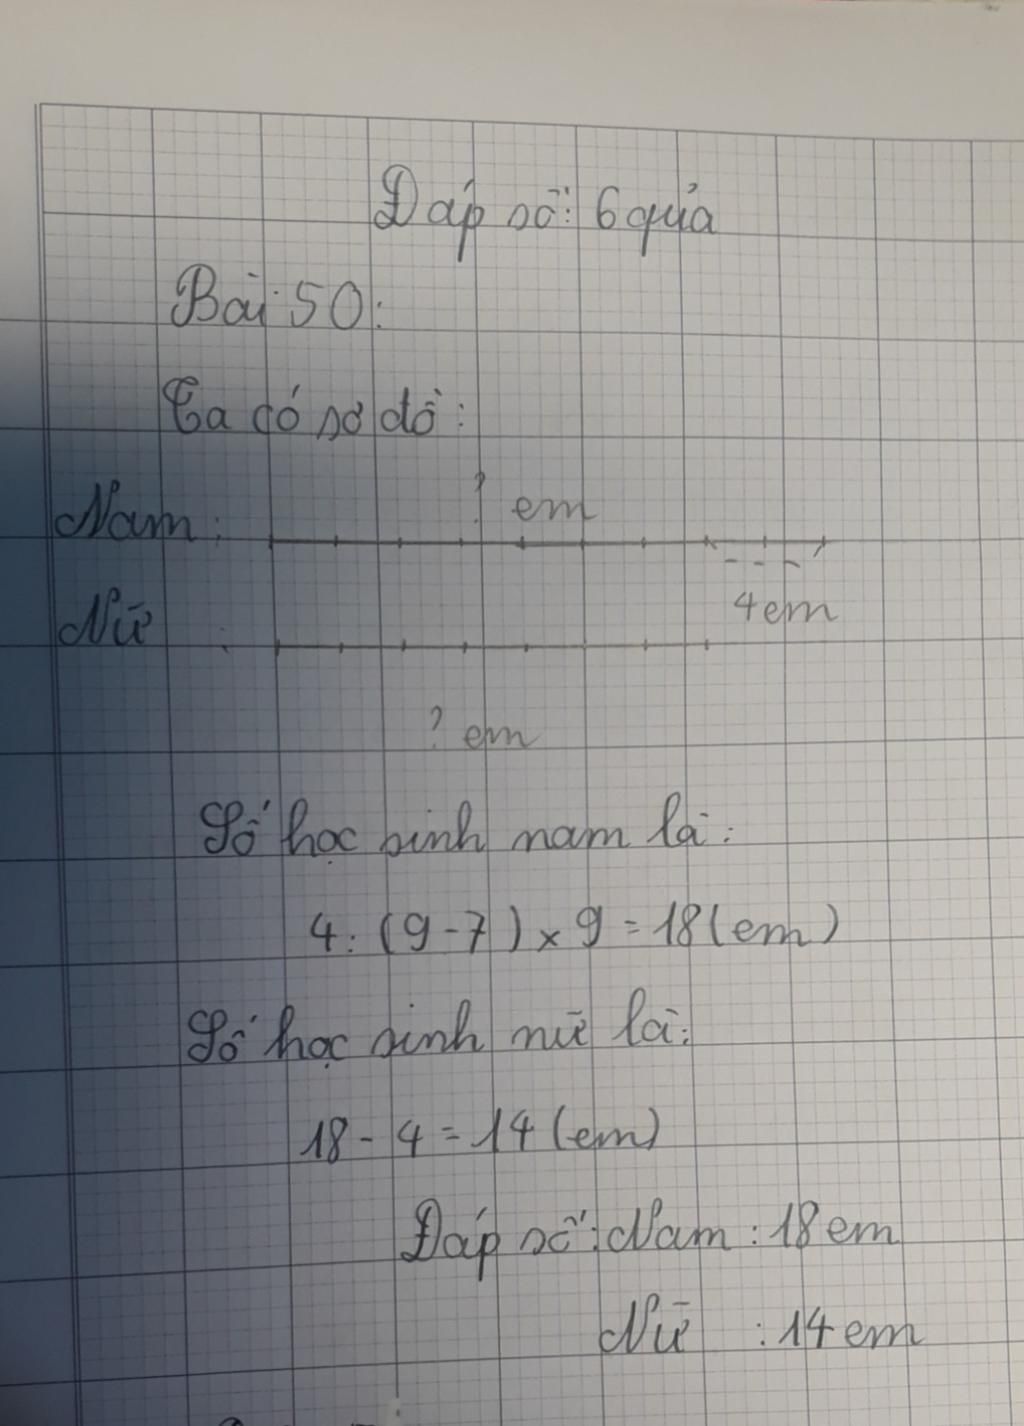 Đáp số: 6 quả
Bài 50:
Ta có sơ đồ:
? em
Nam:
4 em
Nữ :
? em
Số học sinh nam là:
4: (9-7) × 9 = 18 (em)
Số học sinh nữ là:
18 - 4 = 14 (em)
Đáp số: Nam: 18 em
Nữ : 14 em